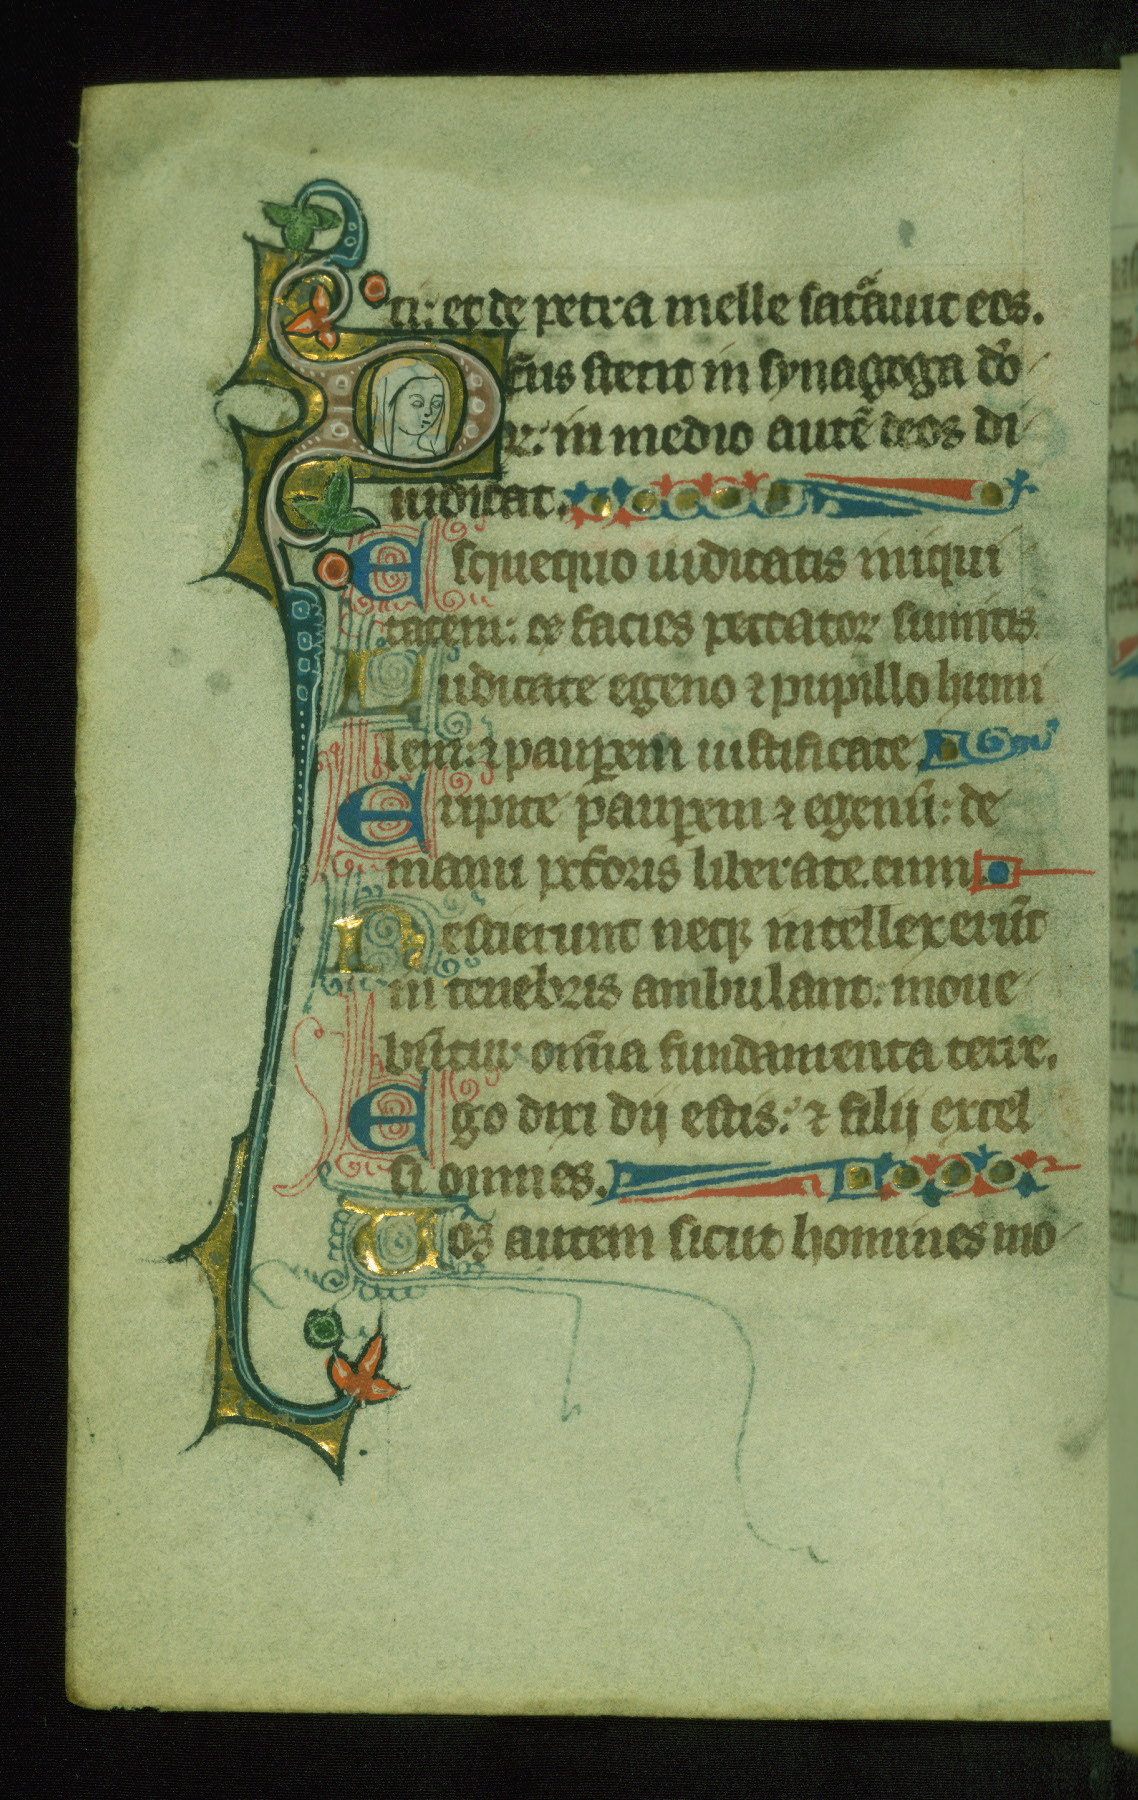 ti: et de petra melle sat̃auit eos.
Deus stetit in synagoga deo
rͬ: in medio autẽ deos di
iudicat.
Esquequo iudicatis iniqui
tatem: et facies peccatorͬ sumitis.
Iudicate egeno ⁊ pupillo humi
lem: ⁊ paup̱em iustificate
Eripite paup̱em ⁊ egenũ: de
manu pc̃toris liberate. eum
Nescierunt neqꝫ intellexerũt
in tenebris ambulant: moue
bũtur om̃ia fundamenta terre.
Ego dixi dij estis: ⁊ filij excel
si omnes.
Vos autem sicut homines mo